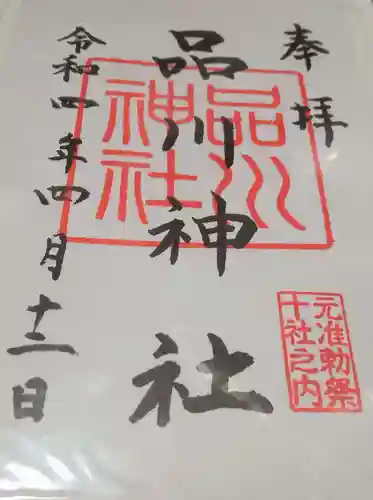 奉拝
品川神社
品川神社
元准勅祭
十社之内
令和四年四月十二日